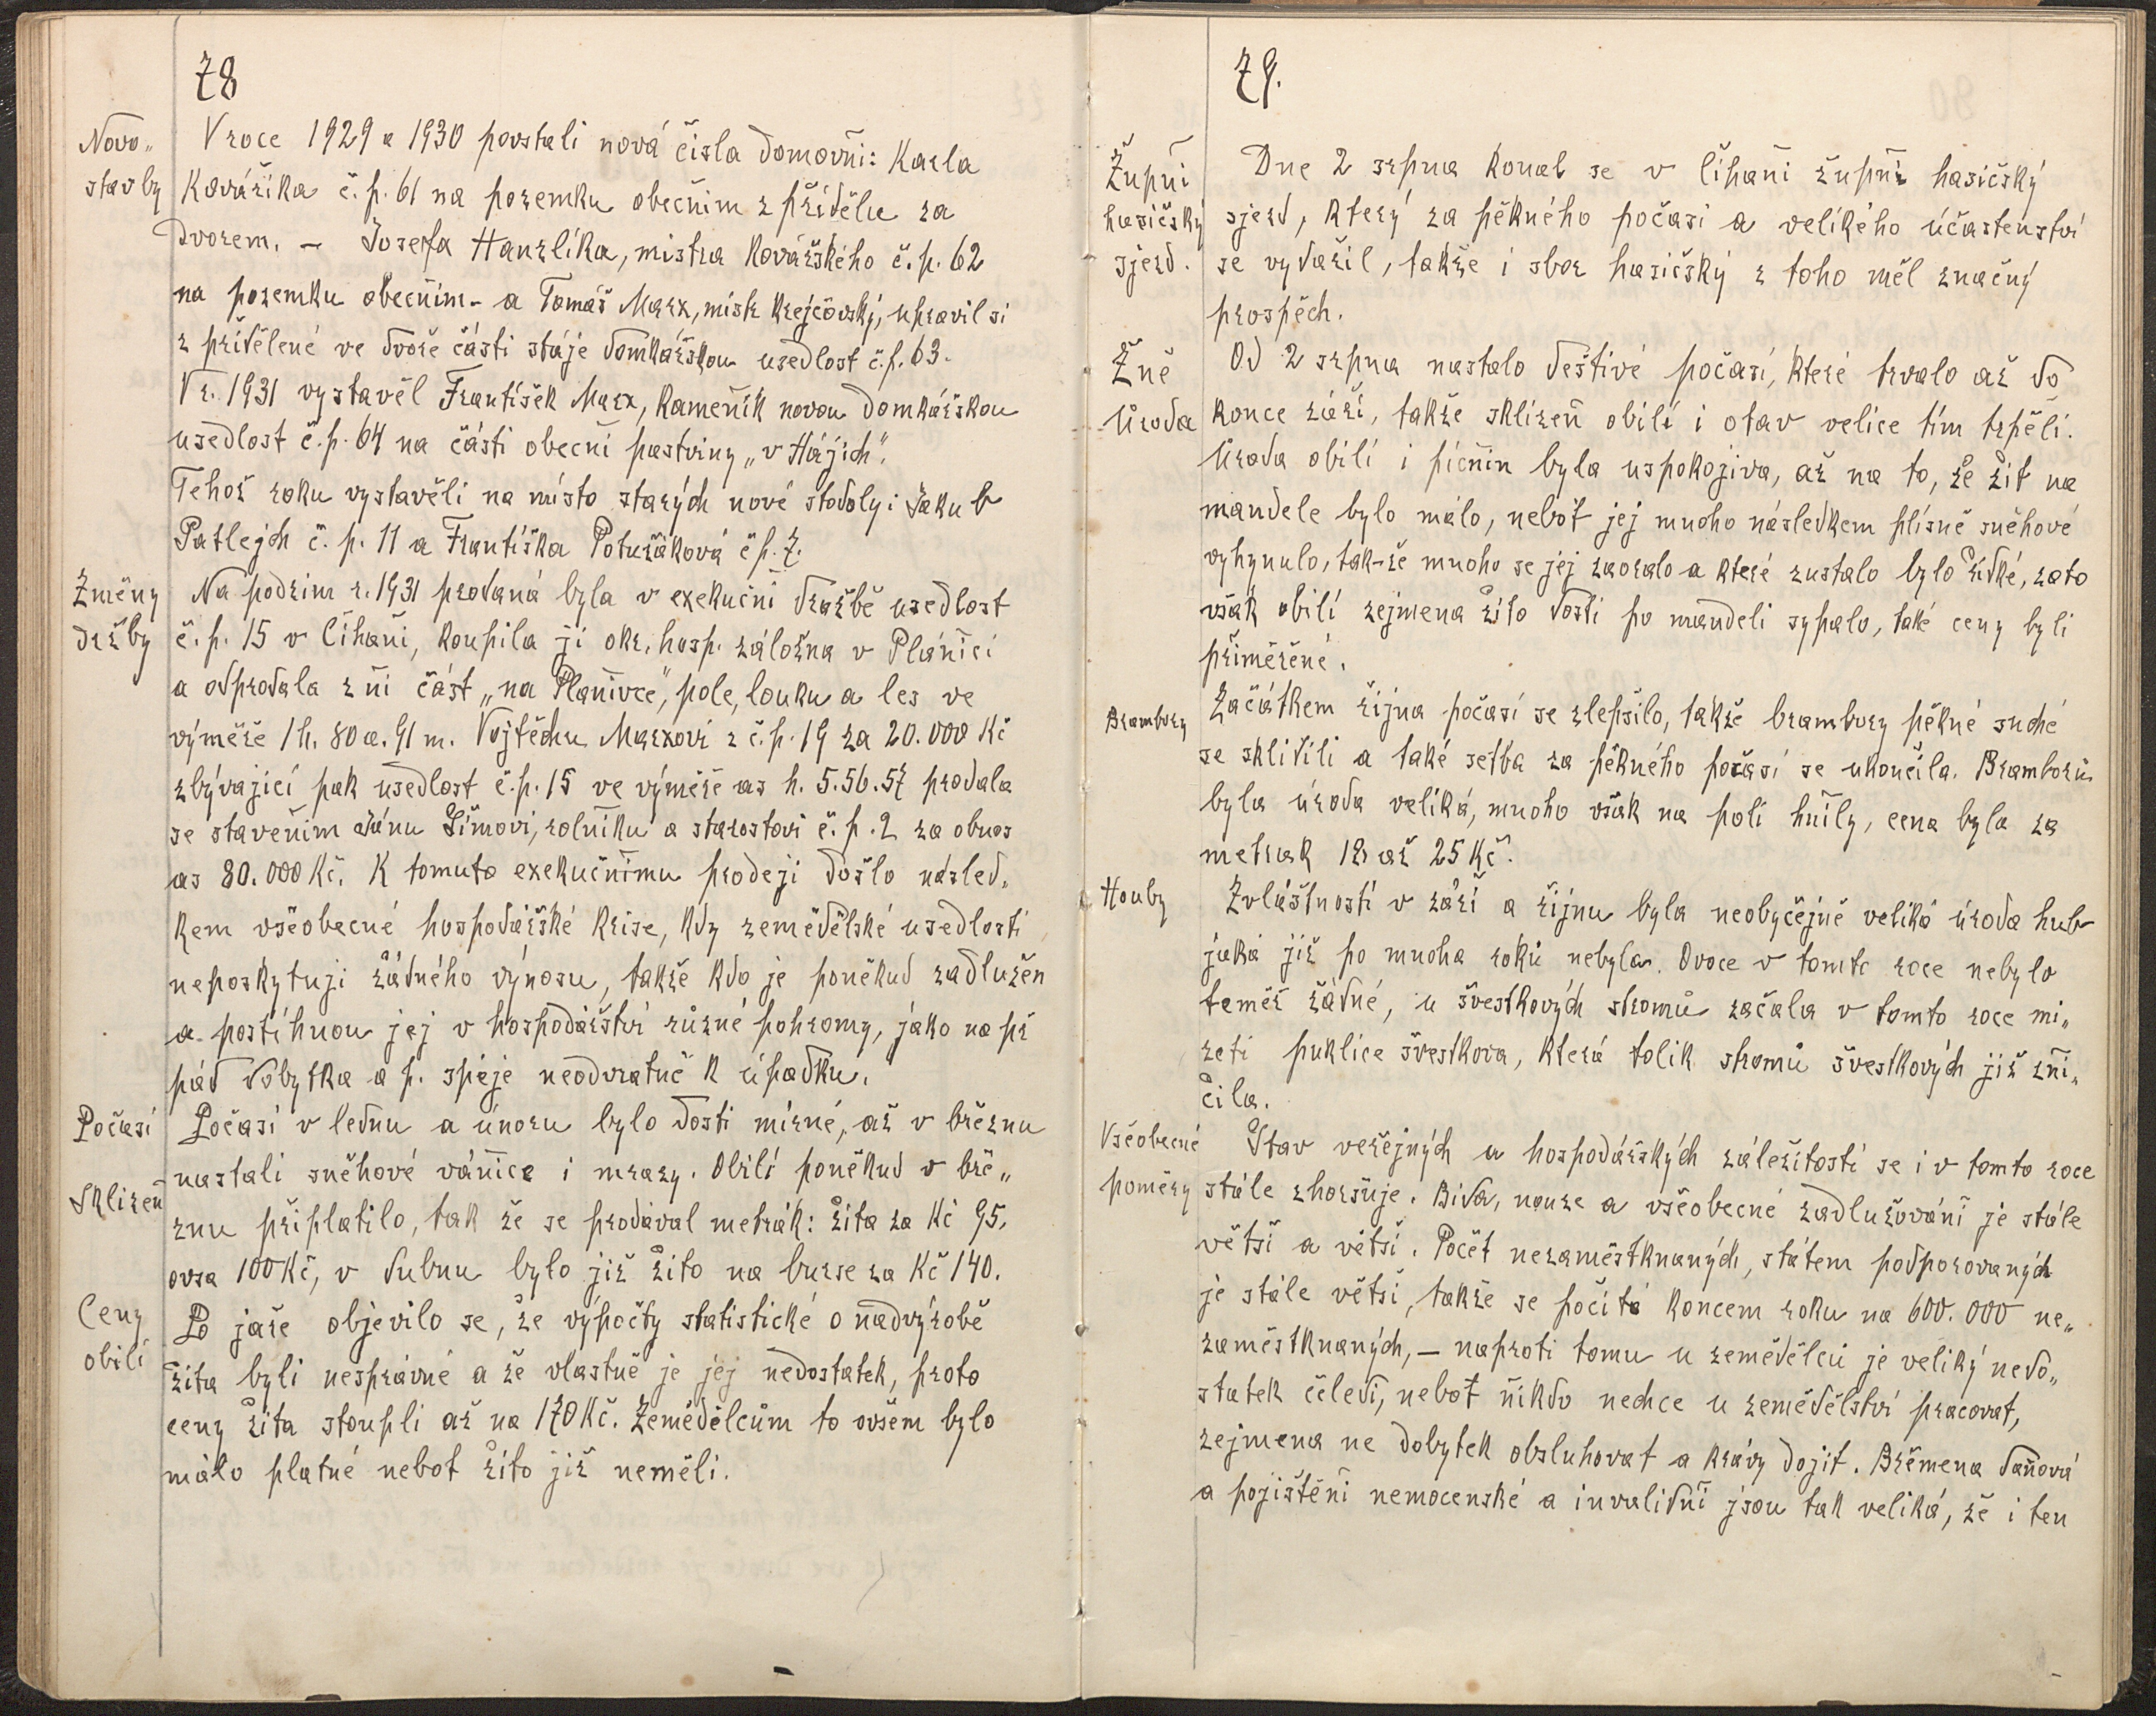 78
Novo„
stavby
V roce 1929 a 1930 povstali nová čisla domovňi: Karla
Kovářika č. p. 61 na pozemku obečnim z přiděle za
Dvorem. – Josefa Hanzlíka, mistra Kovářského č. p. 62
na pozemku obečnim – a Tomáš Marx, mistr Krejčovský, upravil si
z přidělené ve dvoře části stáje domkářskou usedlost č. p. 63.
V r. 1931 vystavěl František Marx, Kameňik novou domkářskou
usedlost č. p. 64 na části obecňi pastviny „v Hájich".
Tehož roku vystavěli na místo starých nové stodoly: Jakub
Patlejch č. p. 11 a Františka Potužáková č p. 7.
Změny
držby
Na podzim r. 1931 prodaná byla v exekučňi dražbě usedlost
č. p. 15 v Čihaňi, koupila ji okr. hosp. záložna v Pláňici
a odprodala z ňi část „na Plaňivce", pole, louku a les ve
výměře 1 h. 80 a. 91 m. Vojtěchu Marxovi z č. p. 19 za 20.000 Kč
zbývajicí pak usedlost č. p. 15 ve výměře as h. 5.56.57 prodala
se staveňim Jánu Šimovi, rolňiku a starostovi č. p. 2 za obnos
as 80.000 Kč. K tomuto exekučňimu prodeji došlo násled„
kem všeobecné hospodářské krise, kdy zemědělské usedlosti
neposkytuji žádného výnosu, takže kdo je poněkud zadlužen
a postihnou jej v hospodářství různé pohromy, jako na př
pád dobytka a p. spěje neodvratně k úpadku.
Počasí
Počasí v lednu a únoru bylo dosti mírné, až v březnu
nastali sněhové váňice i mrazy. Obilí poněkud v bře„
Sklizeň
znu připlatilo, tak že se prodával metrák: žita za Kč 95,
ovsa 100 Kč, v dubnu bylo již žito na burse za Kč 140.
Ceny
obilí
Po jaře objevilo se, že výpočty statistické o nadvýrobě
žita byli nesprávné a že vlastně je jej nedostatek, proto
ceny žita stoupli až na 170 Kč. Zemědělcům to ovšem bylo
málo platné nebot žito již neměli.
79.
Župňi
hasičský
sjezd.
Dne 2 srpna konal se v Čihaňi župňi hasičský
sjezd, který za pěkného počasi a velikého účastenstvi
se vydařil, takže i sbor hasičský z toho měl značný
prospěch.
Žně
Úroda
Od 2 srpna nastalo deštivé počasí, které trvalo až do
konce září, takže sklizeň obilí i otav velice tím trpěli.
Úroda obilí i picňin byla uspokojiva, až na to, že žit na
mandele bylo málo, neboť jej mnoho následkem plísně sněhové
vyhynulo, tak-že mnoho se jej zaoralo a které zustalo bylo řidké, zato
však obilí zejmena žito dosti po mandeli sypalo, také ceny byli
přiměřené.
Brambory
Začátkem řijna počasí se zlepšilo, takže brambory pěkné suché
se sklidili a také setba za pěkného počasí se ukončila. Bramborů
byla úroda veliká, mnoho však na poli hňily, cena byla za
metrak 18 až 25 Kč.
Houby
Zvláštností v září a řijnu byla neobyčejně veliká úroda hub
jaká již po mnoha roků nebyla. Ovoce v tomto roce nebylo
teměř žádné, u švestkových stromů začala v tomto roce mi„
zeti puklice švestkova, která tolik stromů švestkových již zňi„
čila.
Všeobecné
poměry
Stav veřejných a hospodářských záležitostí se i v tomto roce
stále zhoršuje. Bida, nouze a všeobecné zadlužováňi je stále
větši a větši. Počet nezaměstknaných, státem podporovaných
je stále větši, takže se počítá koncem roku na 600.000 ne„
zaměstknaných, – naproti tomu u zemědělců je veliký nedo„
statek čeledi, nebot ňikdo nechce u zemědělství pracovat,
zejmena ne dobytek obsluhovat a krávy dojit. Břemena daňová
a pojištěňi nemocenské a invalidňi jsou tak veliká, že i ten